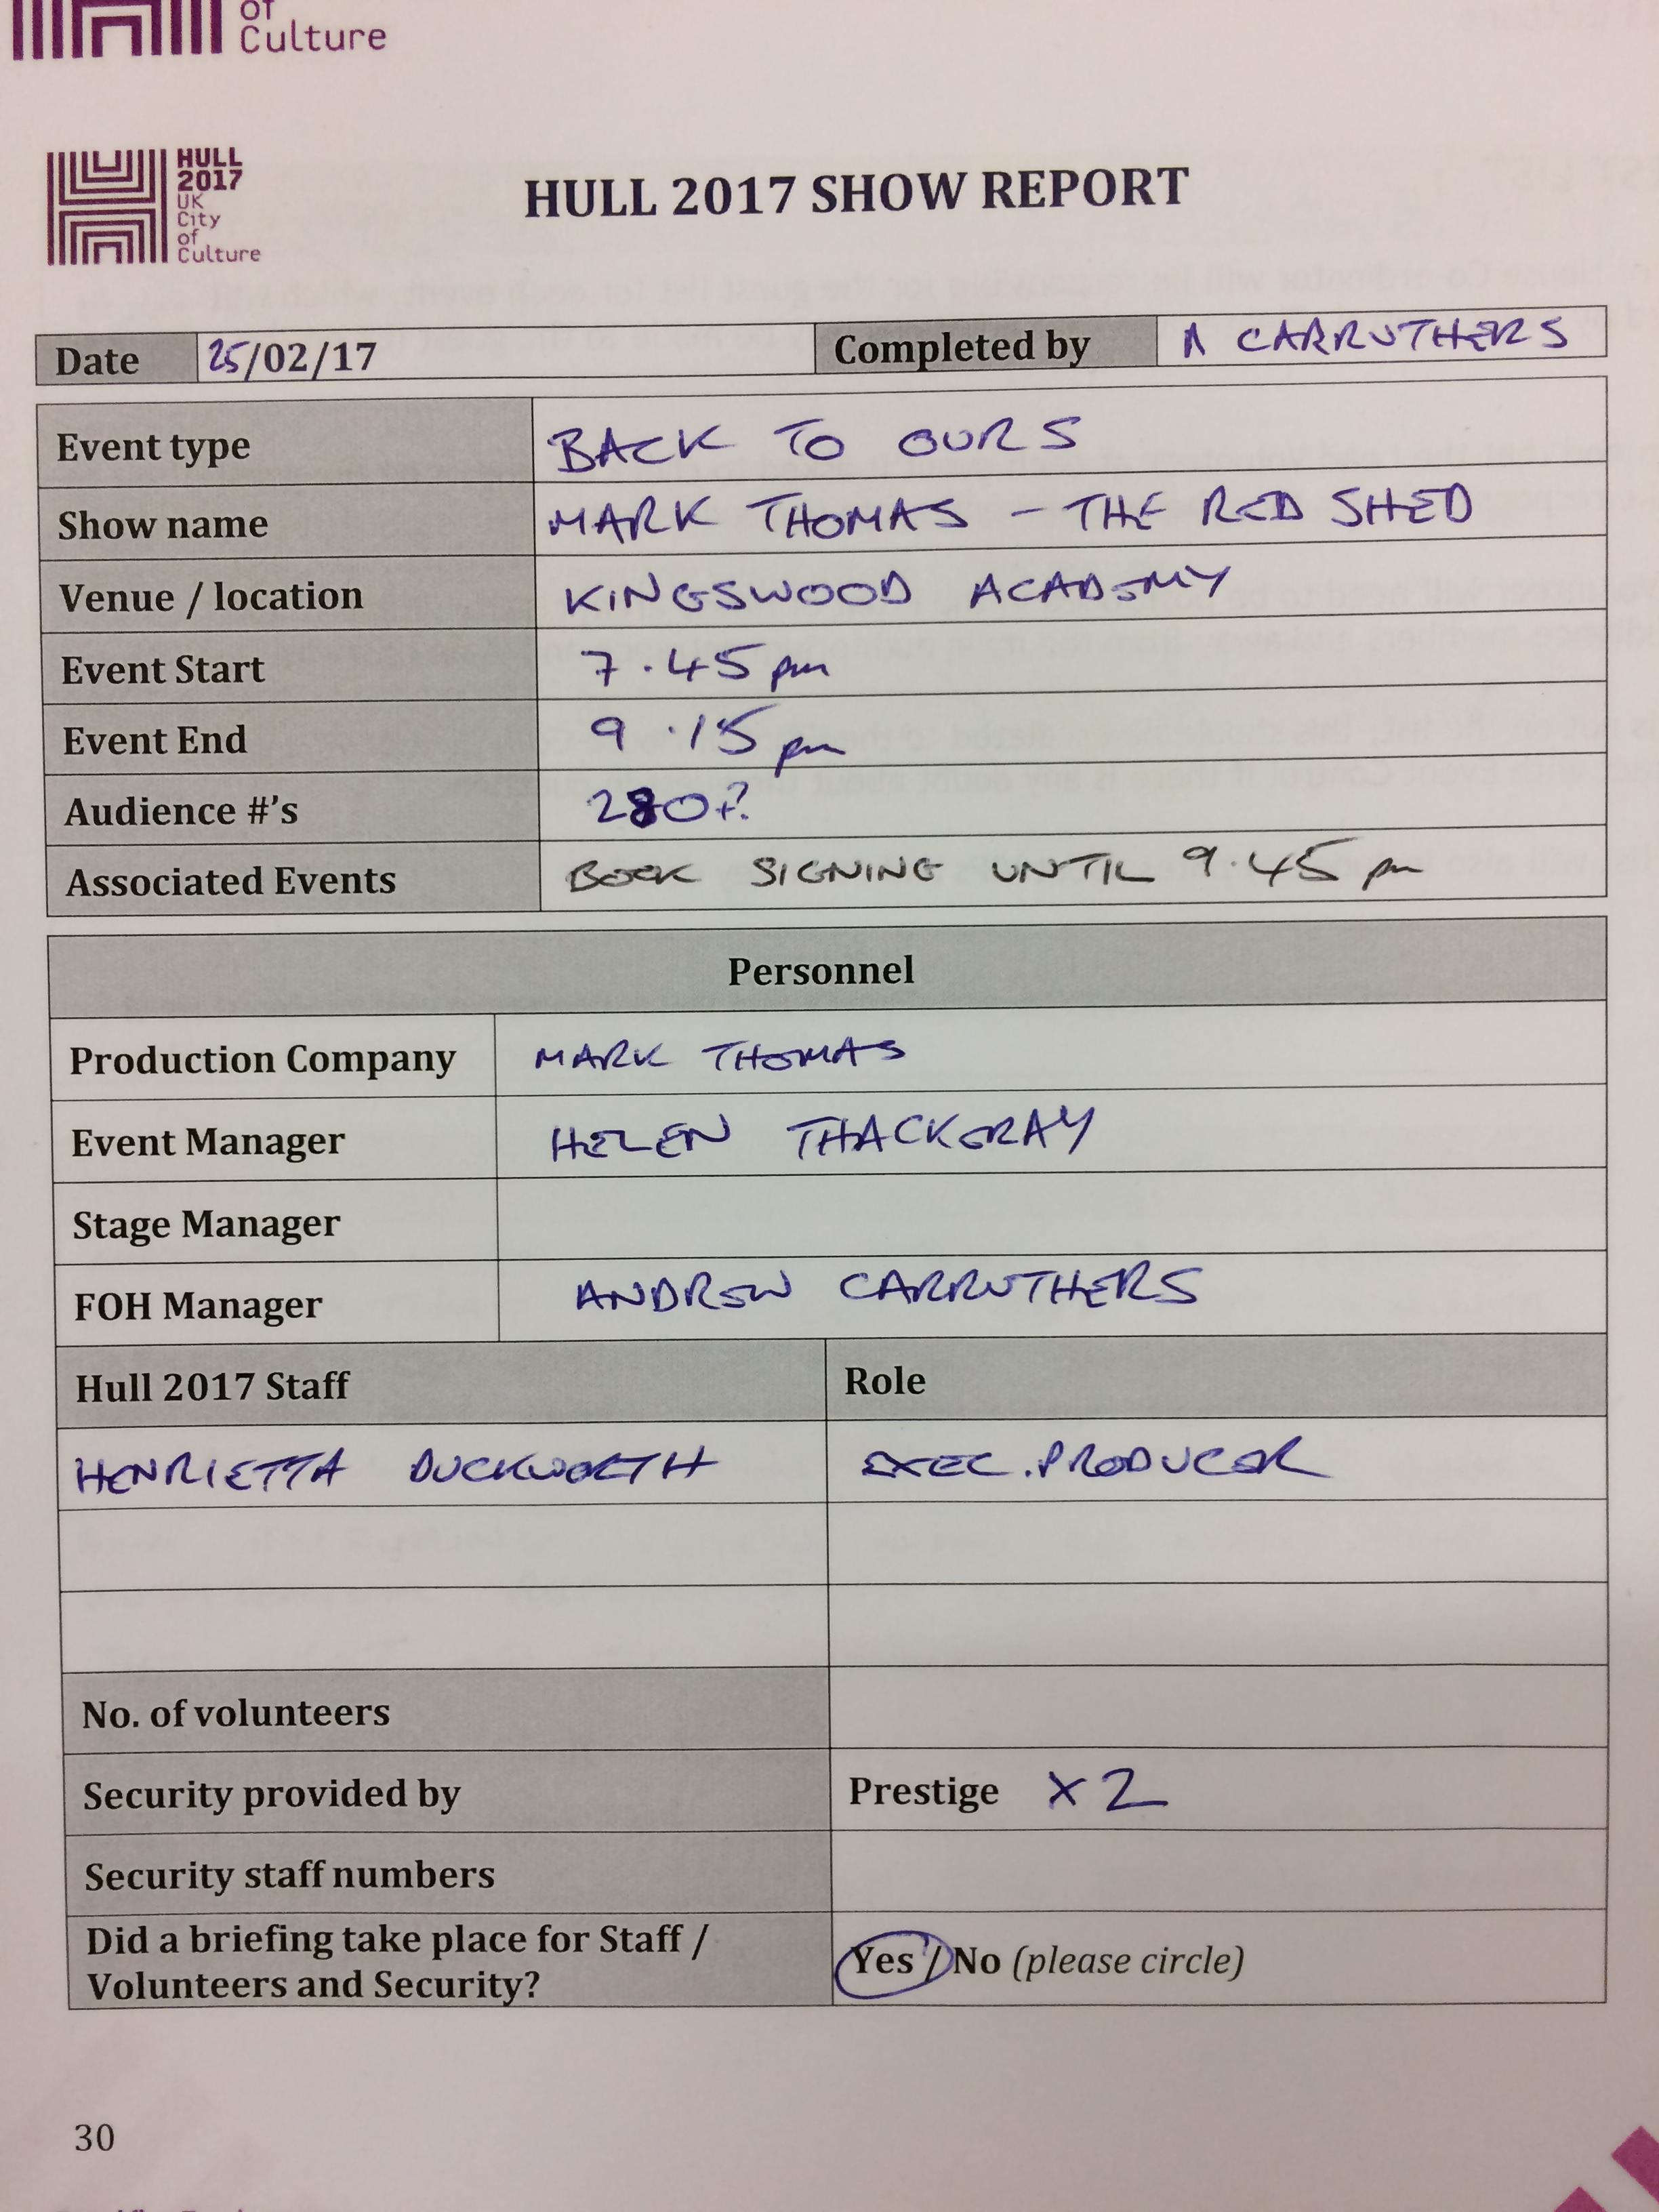 OF
Culture
HULL
2017
UK
City
of
Culture
HULL 2017 SHOW REPORT
Date 25/02/17 Completed by A CARRUTHERS
Event type BACK TO OURS
Show name MARK THOMAS – THE RED SHED
Venue / location KINGSWOOD ACADEMY
Event Start 7.45pm
Event End 9.15pm
Audience #'s 280?
Associated Events BOOK SIGNING UNTIL 9.45pm
Personnel
Production Company MARK THOMAS
Event Manager HELEN THACKERAY
Stage Manager
FOH Manager ANDREW CARRUTHERS
Hull 2017 Staff Role
HENRIETTA DUCKWORTH EXEC. PRODUCER
No. of volunteers
Security provided by Prestige x2
Security staff numbers
Did a briefing take place for Staff / Yes / No (please circle)
Volunteers and Security?
30